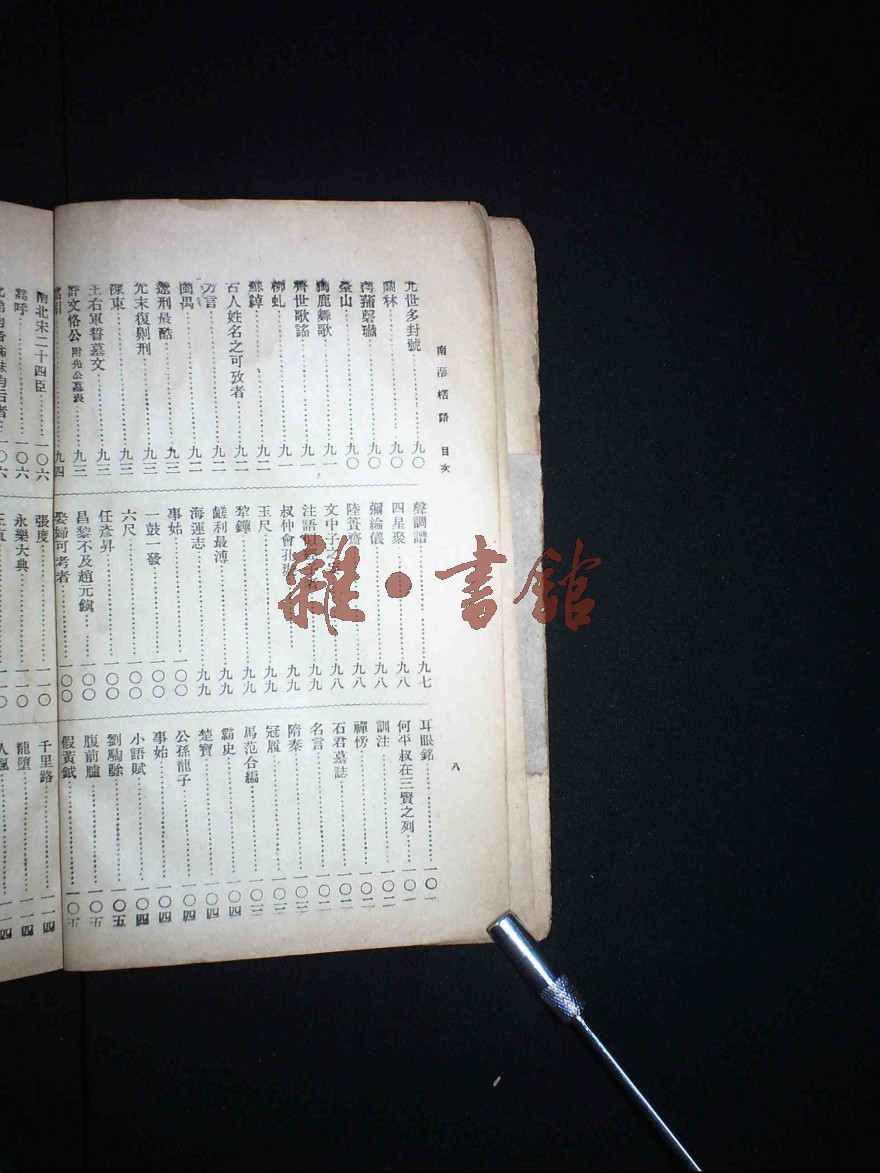 南 目次
八
元世多封號 九〇
九〇
菖蒲罄 九〇
臺山 九〇
獨鹿舞歌 九一
齊世歌謠 九一
柳虬 九一
蘇綽 九二
百人姓名之可攷者 九二
方言 九二
閩禺 九二
遼刑最酷 九三
元末復剕刑 九三
東 九三
王右軍誓墓文 九三
許文恪公 附先公墓表 九三
九四
南北宋二十四臣 一〇六
嵩呼 一〇六
一〇六
聲調譜 九七
四星聚 九八
彌綸儀 九八
陸 九八
文中子之 九八
注語 九九
叔仲會孔 九九
玉尺 九九
犂鏵 九九
鹺利最溥 九九
海運志 九九
事始 一〇〇
一鼓一發 一〇〇
六尺 一〇〇
任彥昇 一〇〇
昌黎不及趙元鎮 一〇〇
娶婦可考者 一〇〇
張度 一一〇
永樂大典 一一〇
一一〇
耳眼銘 一〇一
何平叔在三賢之列 一〇一
訓注 一〇二
禪傍 一〇二
石君墓誌 一〇二
名言 一〇二
隋秦 一〇三
冠履 一〇三
馬范合編 一〇三
霸史 一〇四
楚寶 一〇四
公孫龍子 一〇四
事始 一〇四
小語賦 一〇四
劉騊駼 一〇五
腹前臚 一〇五
假黃鉞 一〇五
千里路 一一四
龍墮 一一四
一一四
雜·書館